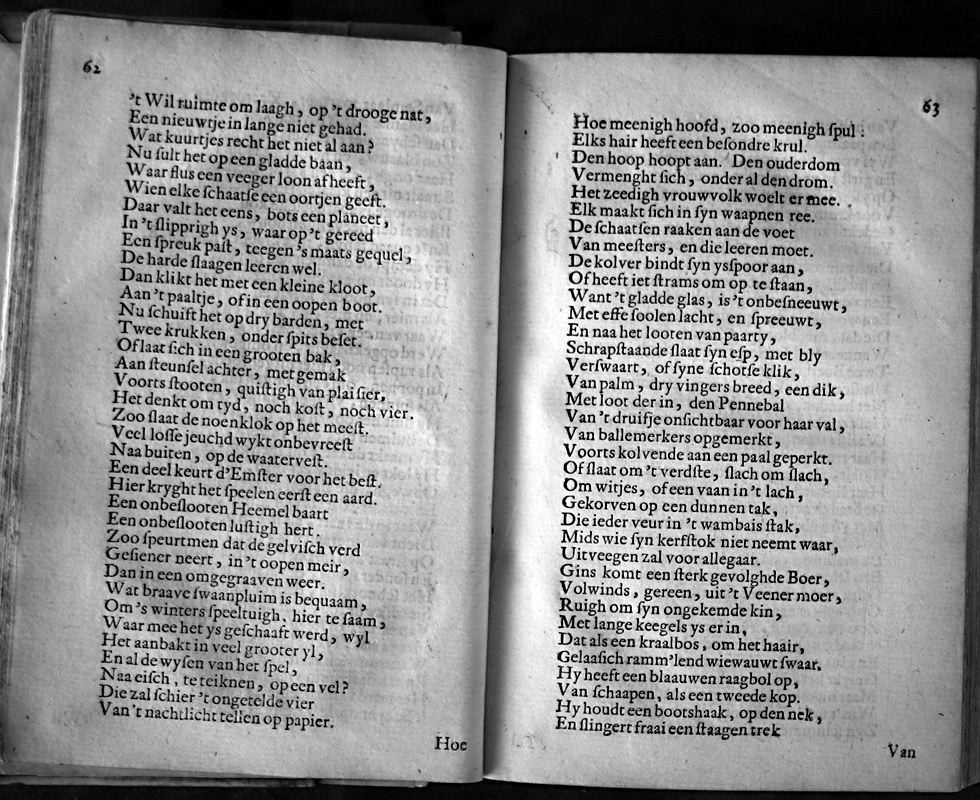 62
't Wil ruimte om laagh, op 't drooge nat,
Een nieuwtje in lange niet gehad.
Wat kuurtjes recht het niet al aan?
Nu ſult het op een gladde baan,
Waar flus een veeger loon af heeft,
Wien elke ſchaatſe een oortjen geeft.
Daar valt het eens, bots een planeet,
In 't ſlipprigh ys, waar op 't gereed
Een ſpreuk paſt, teegen 's maats gequel,
De harde ſlaagen leeren wel.
Dan klikt het met een kleine kloot,
Aan 't paaltje, of in een oopen boot.
Nu ſchuift het op dry barden, met
Twee krukken, onder ſpits beſet.
Of laat ſich in een grooten bak,
Aan ſteunſel achter, met gemak
Voorts ſtooten, quiſtigh van plaiſier,
Het denkt om tyd, noch koſt, noch vier.
Zoo ſlaat de noenklok op het meeſt.
Veel loſſe jeuchd wykt onbevreeſt
Naa buiten, op de waaterveſt.
Een deel keurt d'Emſter voor het beſt.
Hier kryght het ſpeelen eerſt een aard.
Een onbeſlooten Heemel baart
Een onbeſlooten luſtigh hert.
Zoo ſpeurtmen dat de gelviſch verd
Geſiener neert, in 't oopen meir,
Dan in een omgegraaven weer.
Wat braave ſwaanpluim is bequaam,
Om 's winters ſpeeltuigh, hier te ſaam,
Waar mee het ys geſchaaft werd, wyl
Het aanbakt in veel grooter yl,
En al de wyſen van het ſpel,
Naa eiſch, te teiknen, op een vel?
Die zal ſchier 't ongetelde vier
Van 't nachtlicht tellen op papier.
Hoe
63
Hoe meenigh hoofd, zoo meenigh ſpul:
Elks hair heeft een beſondre krul.
Den hoop hoopt aan. Den ouderdom
Vermenght ſich, onder al den drom.
Het zeedigh vrouwvolk woelt er mee.
Elk maakt ſich in ſyn waapnen ree.
De ſchaatſen raaken aan de voet
Van meeſters, en die leeren moet.
De kolver bindt ſyn ysſpoor aan,
Of heeft iet ſtrams om op te ſtaan,
Want 't gladde glas, is 't onbeſneeuwt,
Met effe ſoolen lacht, en ſpreeuwt,
En naa het looten van paarty,
Schrapſtaande ſlaat ſyn eſp, met bly
Verſwaart, of ſyne ſchotſe klik,
Van palm, dry vingers breed, een dik,
Met loot der in, den Pennebal
Van 't druifje onſichtbaar voor haar val,
Van ballemerkers opgemerkt,
Voorts kolvende aan een paal geperkt.
Of ſlaat om 't verdſte, ſlach om ſlach,
Om witjes, of een vaan in 't lach,
Gekorven op een dunnen tak,
Die ieder veur in 't wambais ſtak,
Mids wie ſyn kerfſtok niet neemt waar,
Uitveegen zal voor allegaar.
Gins komt een ſterk gevolghde Boer,
Volwinds, gereen, uit 't Veener moer,
Ruigh om ſyn ongekemde kin,
Met lange keegels ys er in,
Dat als een kraalbos, om het haair,
Gelaaſich ramm'lend wiewauwt ſwaar.
Hy heeft een blaauwen raagbol op,
Van ſchaapen, als een tweede kop.
Hy houdt een bootshaak, op den nek,
En ſlingert fraai een ſtaagen trek
Van